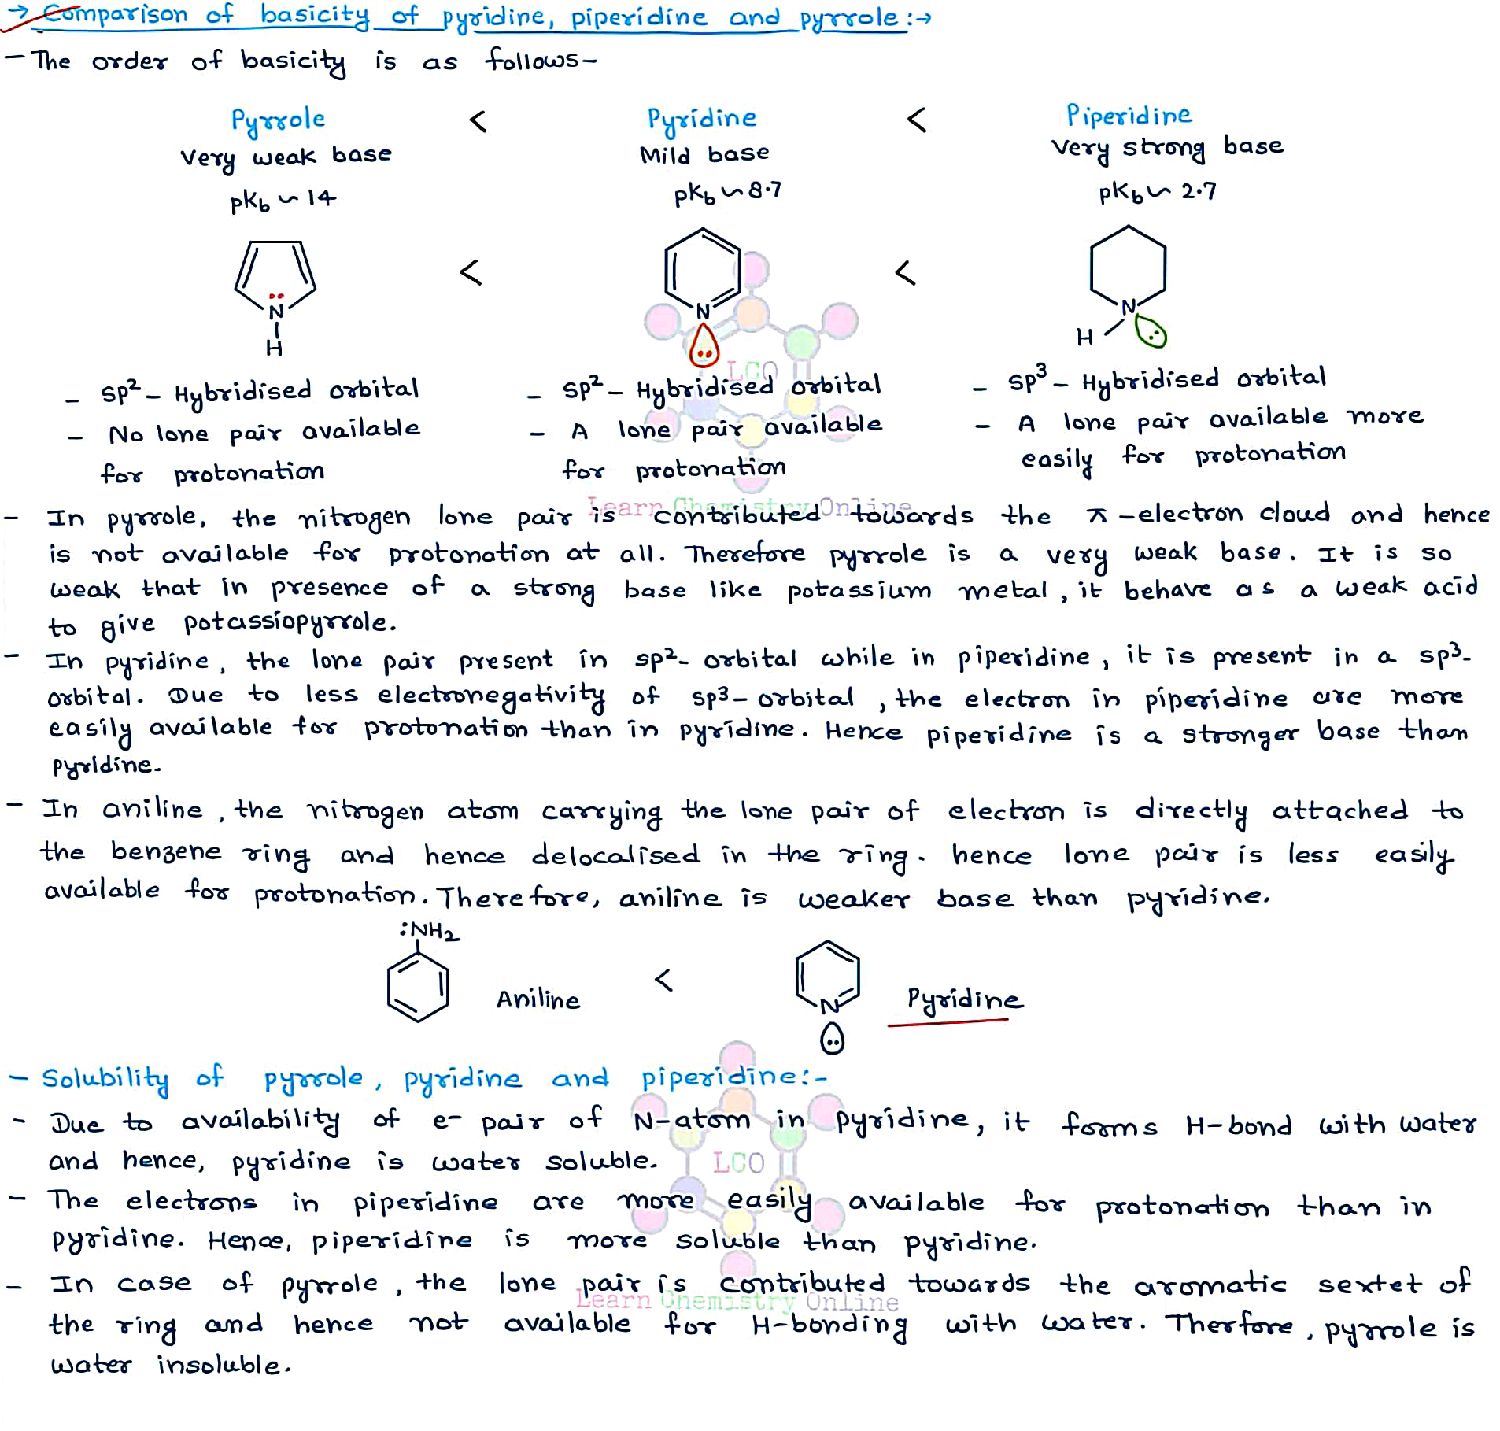 → Comparison of basicity of pyridine, piperidine and pyrrole:→
- The order of basicity is as follows-
Pyrrole < Pyridine < Piperidine
Very weak base Mild base Very strong base
pKb ~ 14 pKb ~ 8.7 pKb ~ 2.7
< <
N N N
H H
LCO
- sp²- Hybridised orbital - sp²- Hybridised orbital - sp³- Hybridised orbital
- No lone pair available - A lone pair available - A lone pair available more
for protonation for protonation easily for protonation
Learn Chemistry Online
- In pyrrole, the nitrogen lone pair is contributed towards the π-electron cloud and hence
is not available for protonation at all. Therefore pyrrole is a very weak base. It is so
weak that in presence of a strong base like potassium metal, it behave as a weak acid
to give potassiopyrrole.
- In pyridine, the lone pair present in sp²- orbital while in piperidine, it is present in a sp³-
orbital. Due to less electronegativity of sp³- orbital, the electron in piperidine are more
easily available for protonation than in pyridine. Hence piperidine is a stronger base than
pyridine.
- In aniline, the nitrogen atom carrying the lone pair of electron is directly attached to
the benzene ring and hence delocalised in the ring. hence lone pair is less easily
available for protonation. Therefore, aniline is weaker base than pyridine.
:NH₂
Aniline < N Pyridine
- Solubility of pyrrole, pyridine and piperidine:-
- Due to availability of e- pair of N-atom in pyridine, it forms H-bond with water
and hence, pyridine is water soluble.
LCO
- The electrons in piperidine are more easily available for protonation than in
pyridine. Hence, piperidine is more soluble than pyridine.
- In case of pyrrole, the lone pair is contributed towards the aromatic sextet of
Learn Chemistry Online
the ring and hence not available for H-bonding with water. Therfore, pyrrole is
water insoluble.